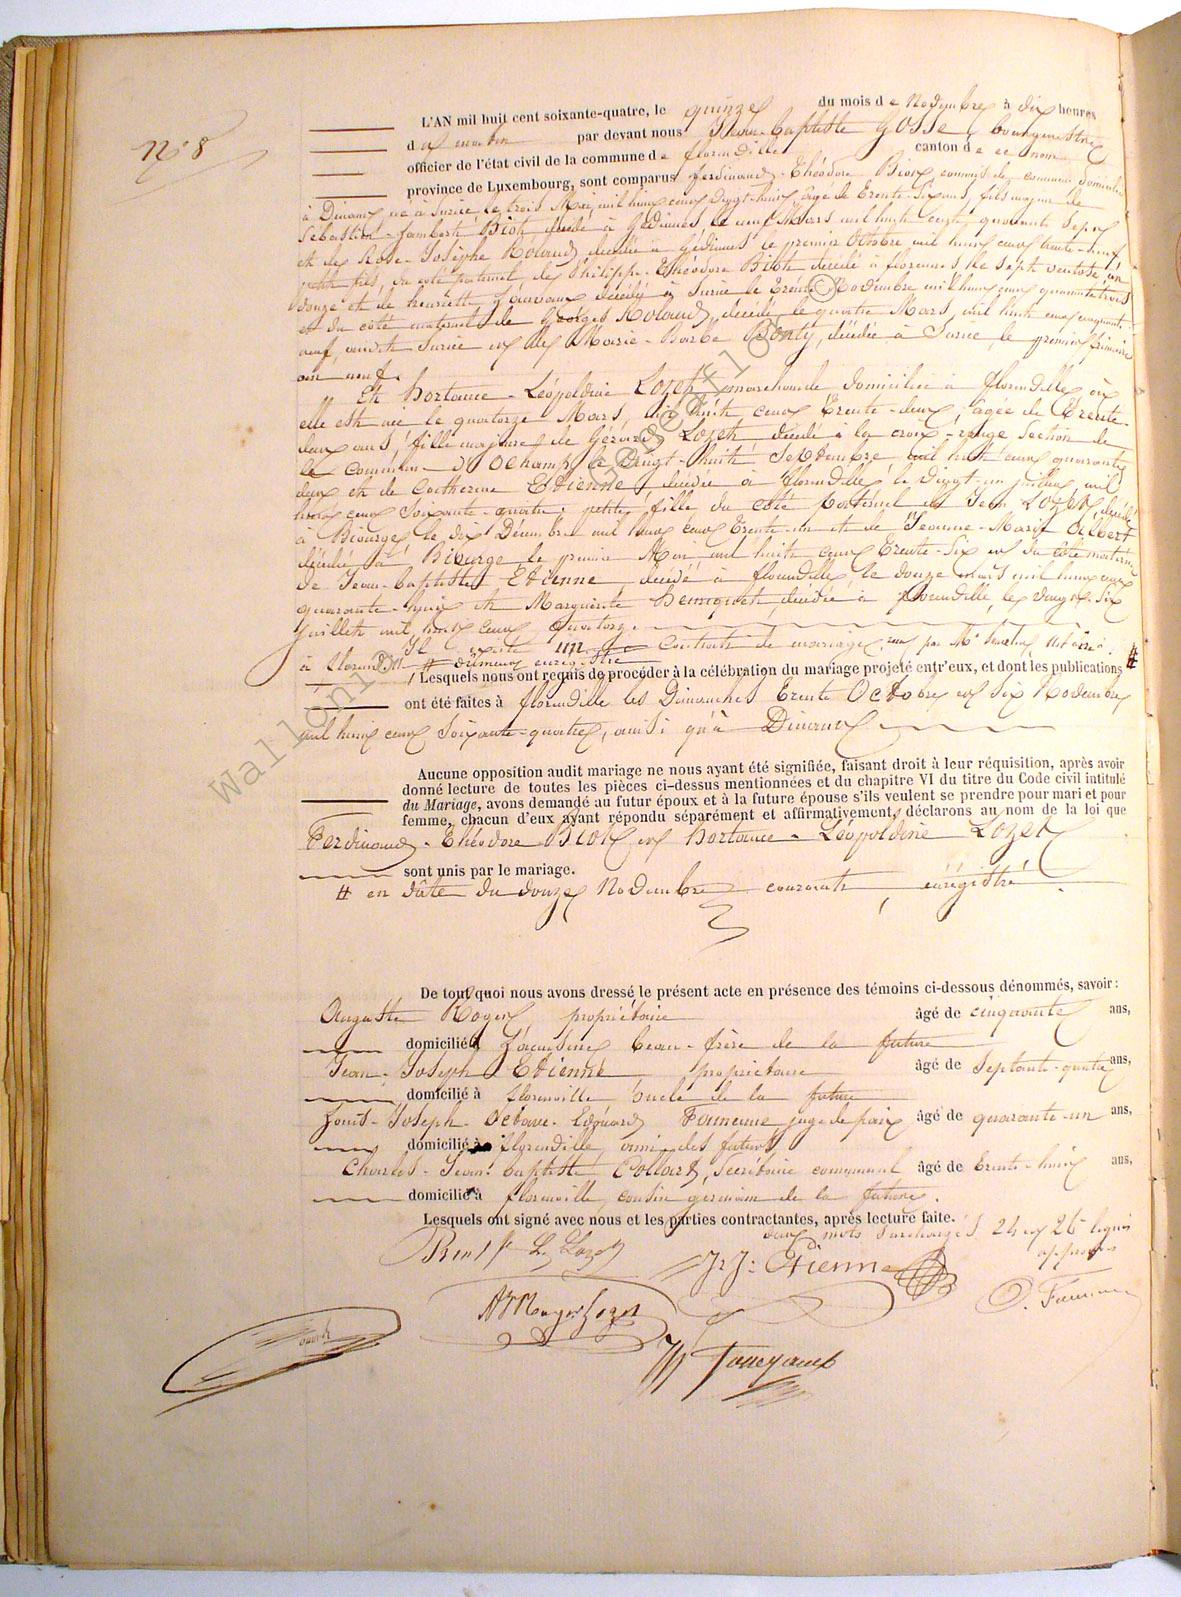 N° 8
L'AN mil huit cent soixante-quatre, le quinze du mois de Novembre à dix heures
du matin par devant nous Jean-Baptiste GOSSE, bourgmestre
officier de l'état civil de la commune de florenville canton de ce nom
province de Luxembourg, sont comparus ferdinand-Théodore Biot, commis de domicilié
à Dinant, né à Surice le trois Mai, mil huit cent vingt-huit, agé de trente-six ans, fils majeur de
Sébastien-Lambert Biot, décédé à Gédinnes le neuf Mars mil huit cent quarante sept
et de Rose-Josèphe Roland, décédée à Gédinnes le premier Octobre mil huit cent trente-neuf
petit fils, du coté paternel de Philippe-Théodore Biot décédé à florennes, le sept ventose an
douze et de henriette décédée à Surice le trente Novembre mil huit cent quarante trois
et du coté maternel de Georges Roland, décédé, le quatre Mars, mil huit cent cinquante
neuf, audit Surice et de Marie-Barbe décédée à Surice, le premier frimaire
an neuf.
Et hortance-Léopoldine LOZET, marchande domiciliée à florenville où
elle est née le quatorze Mars, mil huit cent trente-deux, agée de trente
deux ans, fille majeure de Gérard LOZET, décédé à la croix-rouge section de
la commune d'Ochamp, le vingt-huit Septembre mil huit cent quarante
deux et de Catherine ETIENNE, décédée à florenville le vingt-un juillet mil
huit cent soixante-quatre; petite fille du coté paternel de Jean LOZET, décédé
à Biourge, le dix Décembre mil huit cent trente-un et de Jeanne-Marie Gilbert
décédée à Biourge, le premier Mai, mil huit cent trente-six et du coté maternel
de Jean-Baptiste ETIENNE, décédé à florenville, le douze mars mil huit cent
quarante-huit et Marguerite henriquet, décédée à florenville, le vingt-six
juillet mil huit cent quatorze.
Il existe un contrat de mariage, reçu par Me Notaire
à florenville # dûment enregistré #
Lesquels nous ont requis de procéder à la célébration du mariage projeté entr'eux, et dont les publications
ont été faites à florenville les Dimanches trente Octobre et six Novembre
mil huit cent soixante-quatre, ainsi qu'à Dinant
Aucune opposition audit mariage ne nous ayant été signifiée, faisant droit à leur réquisition, après avoir
donné lecture de toutes les pièces ci-dessus mentionnées et du chapitre VI du titre du Code civil intitulé
du Mariage, avons demandé au futur époux et à la future épouse s'ils veulent se prendre pour mari et pour
femme, chacun d'eux ayant répondu séparément et affirmativement, déclarons au nom de la loi que
Ferdinand-Théodore BIOT et hortance-Léopoldine LOZET
sont unis par le mariage.
# en date du douze Novembre courant, enrégistré
De tout quoi nous avons dressé le présent acte en présence des témoins ci-dessous dénommés, savoir:
Auguste propriétaire âgé de cinquante ans,
domicilié à beau-frère de la future
Jean-Joseph ETIENNE propriétaire âgé de septante-quatre ans,
domicilié à florenville oncle de la future
Louis-Joseph-Octave-Edouard juge de paix âgé de quarante-un ans,
domicilié à florenville, ami des futurs
Charles-Jean-baptiste Collard, secrétaire communal âgé de trente-huit ans,
domicilié à florenville, cousin germain de la future.
Lesquels ont signé avec nous et les parties contractantes, après lecture faite.
deux mots surchargés 24 et 26e lignes
approuvés
Biot f L Lozet
J. J. Etienne
Wallonia Geneaflor ©